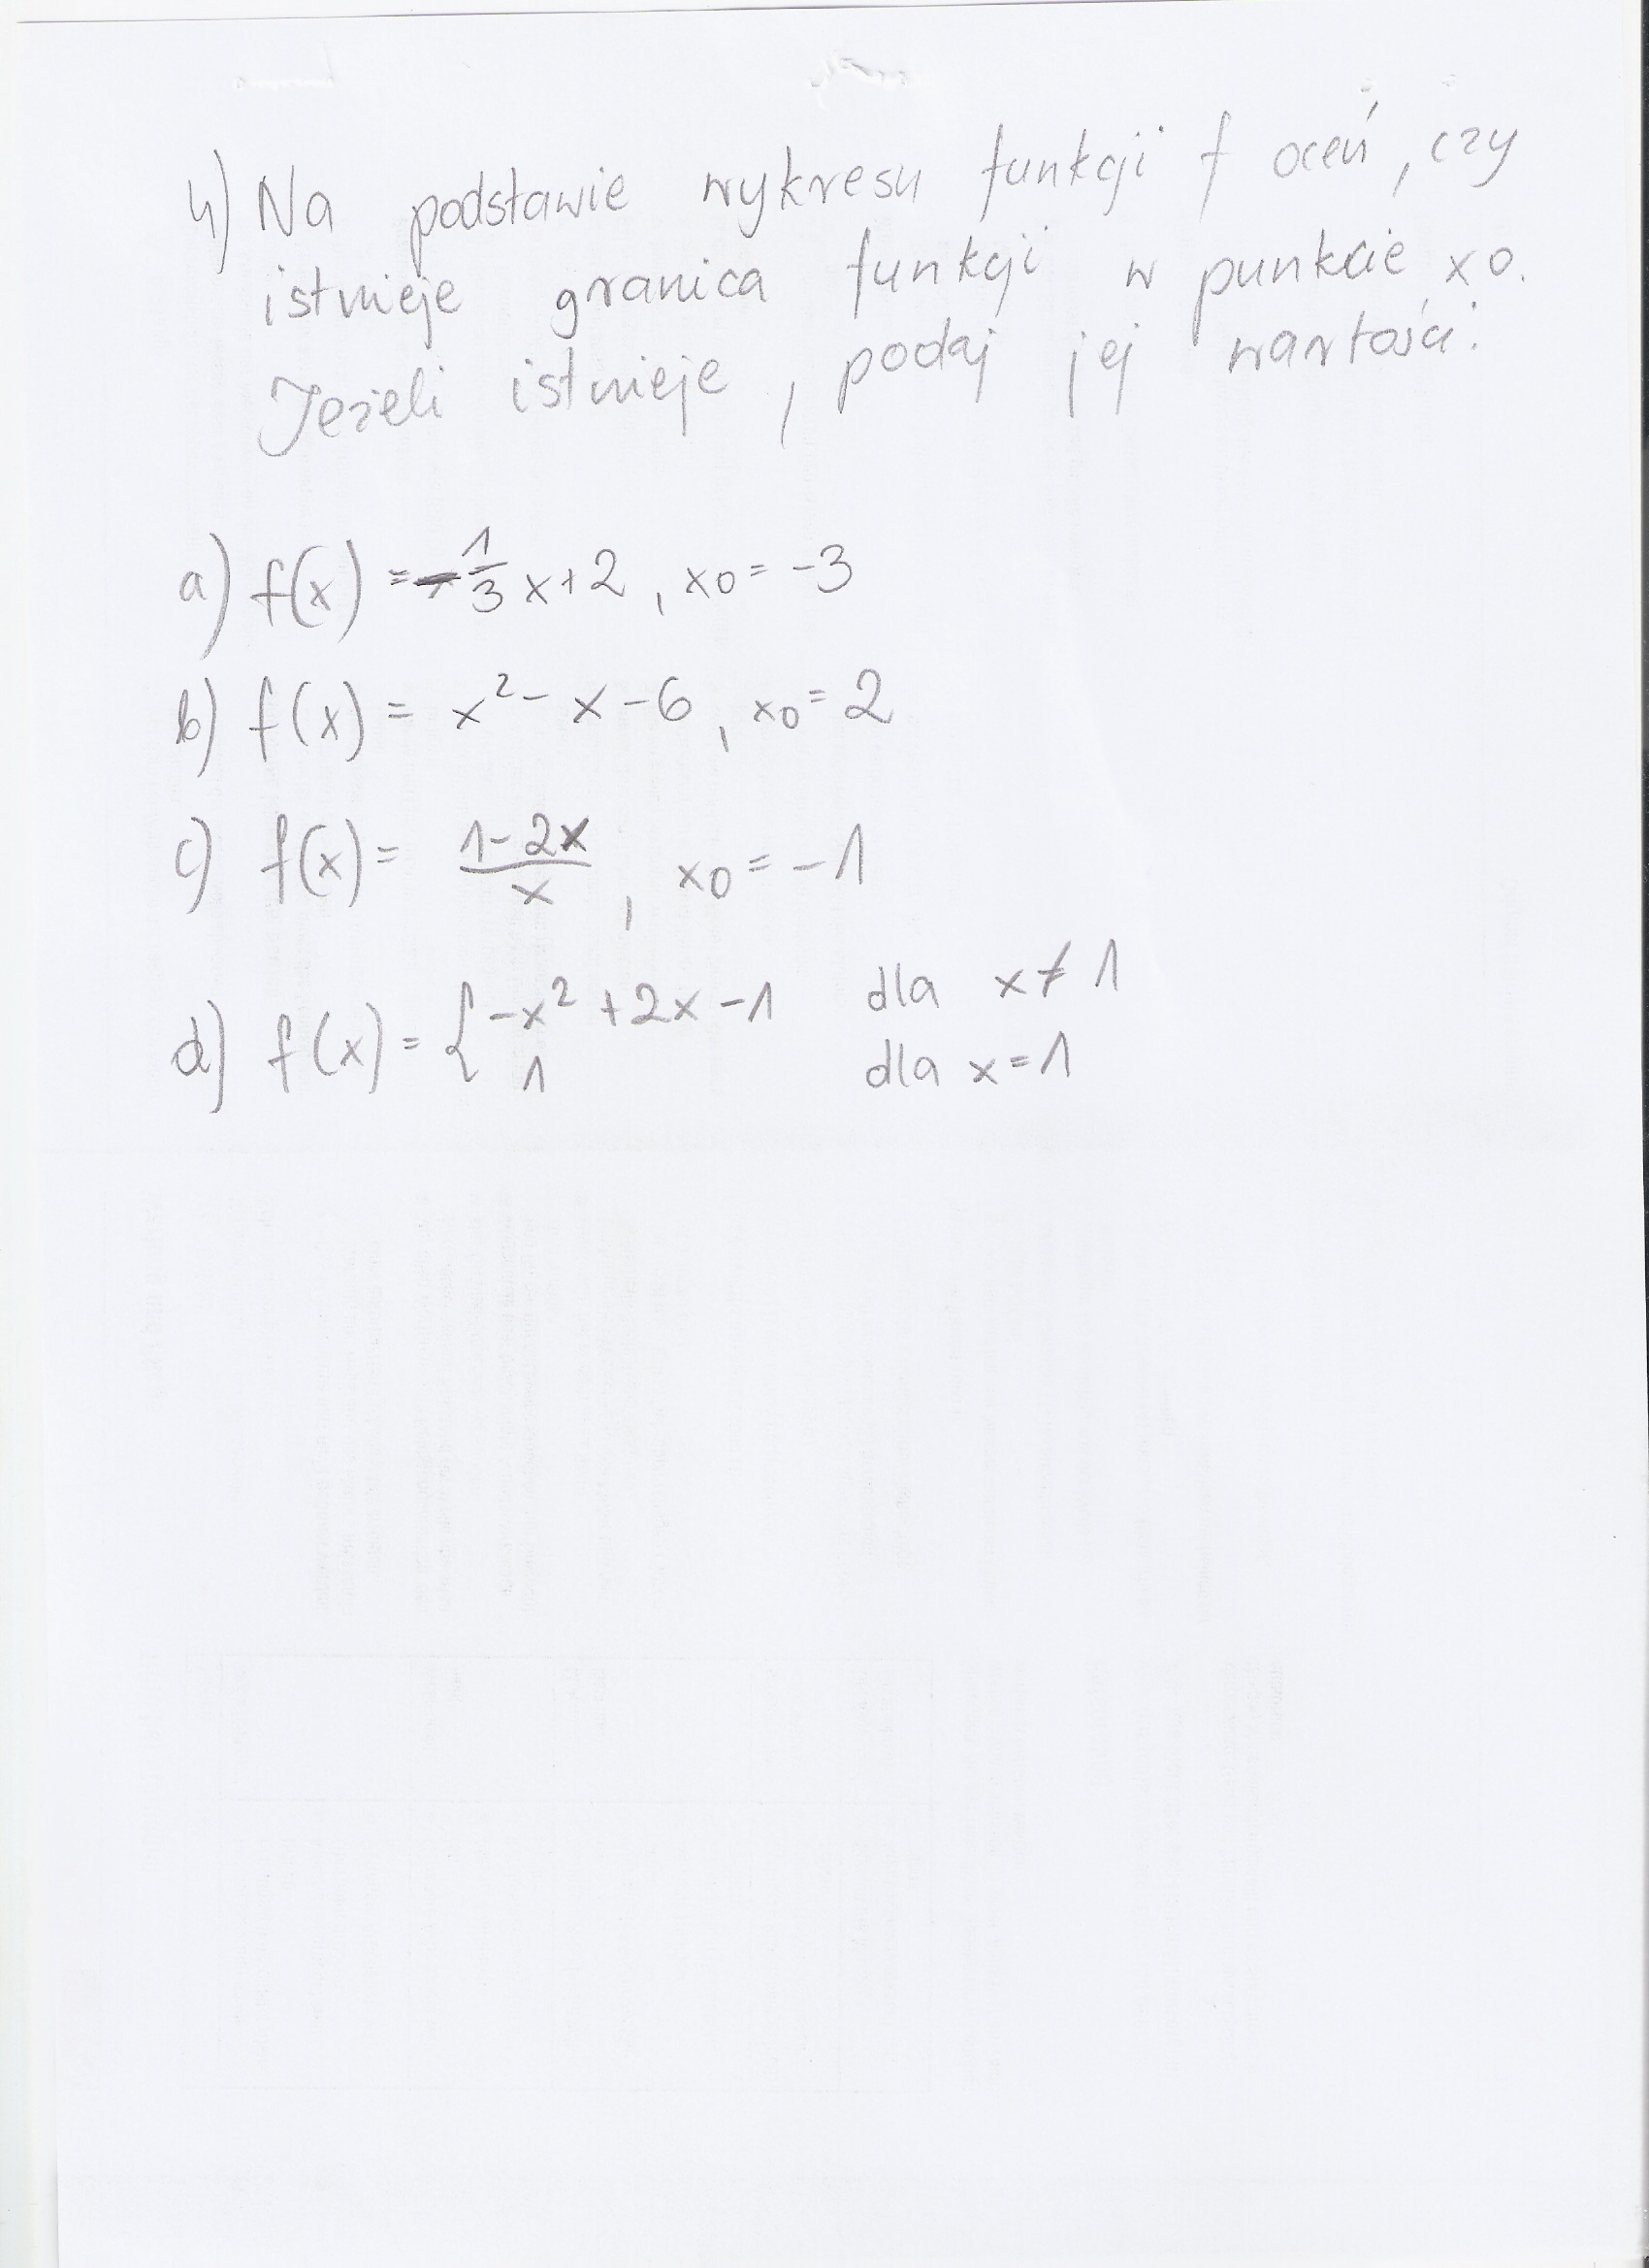 4) Na podstawie wykresu funkcji f oceń, czy
istnieje granica funkcji w punkcie x0.
Jeżeli istnieje, podaj jej wartości.
a) f(x) = -1/3 x+2, x0 = -3
b) f(x) = x² - x - 6, x0 = 2
c) f(x) = (1-2x)/x, x0 = -1
d) f(x) = { -x² + 2x - 1 dla x ≠ 1
1 dla x = 1